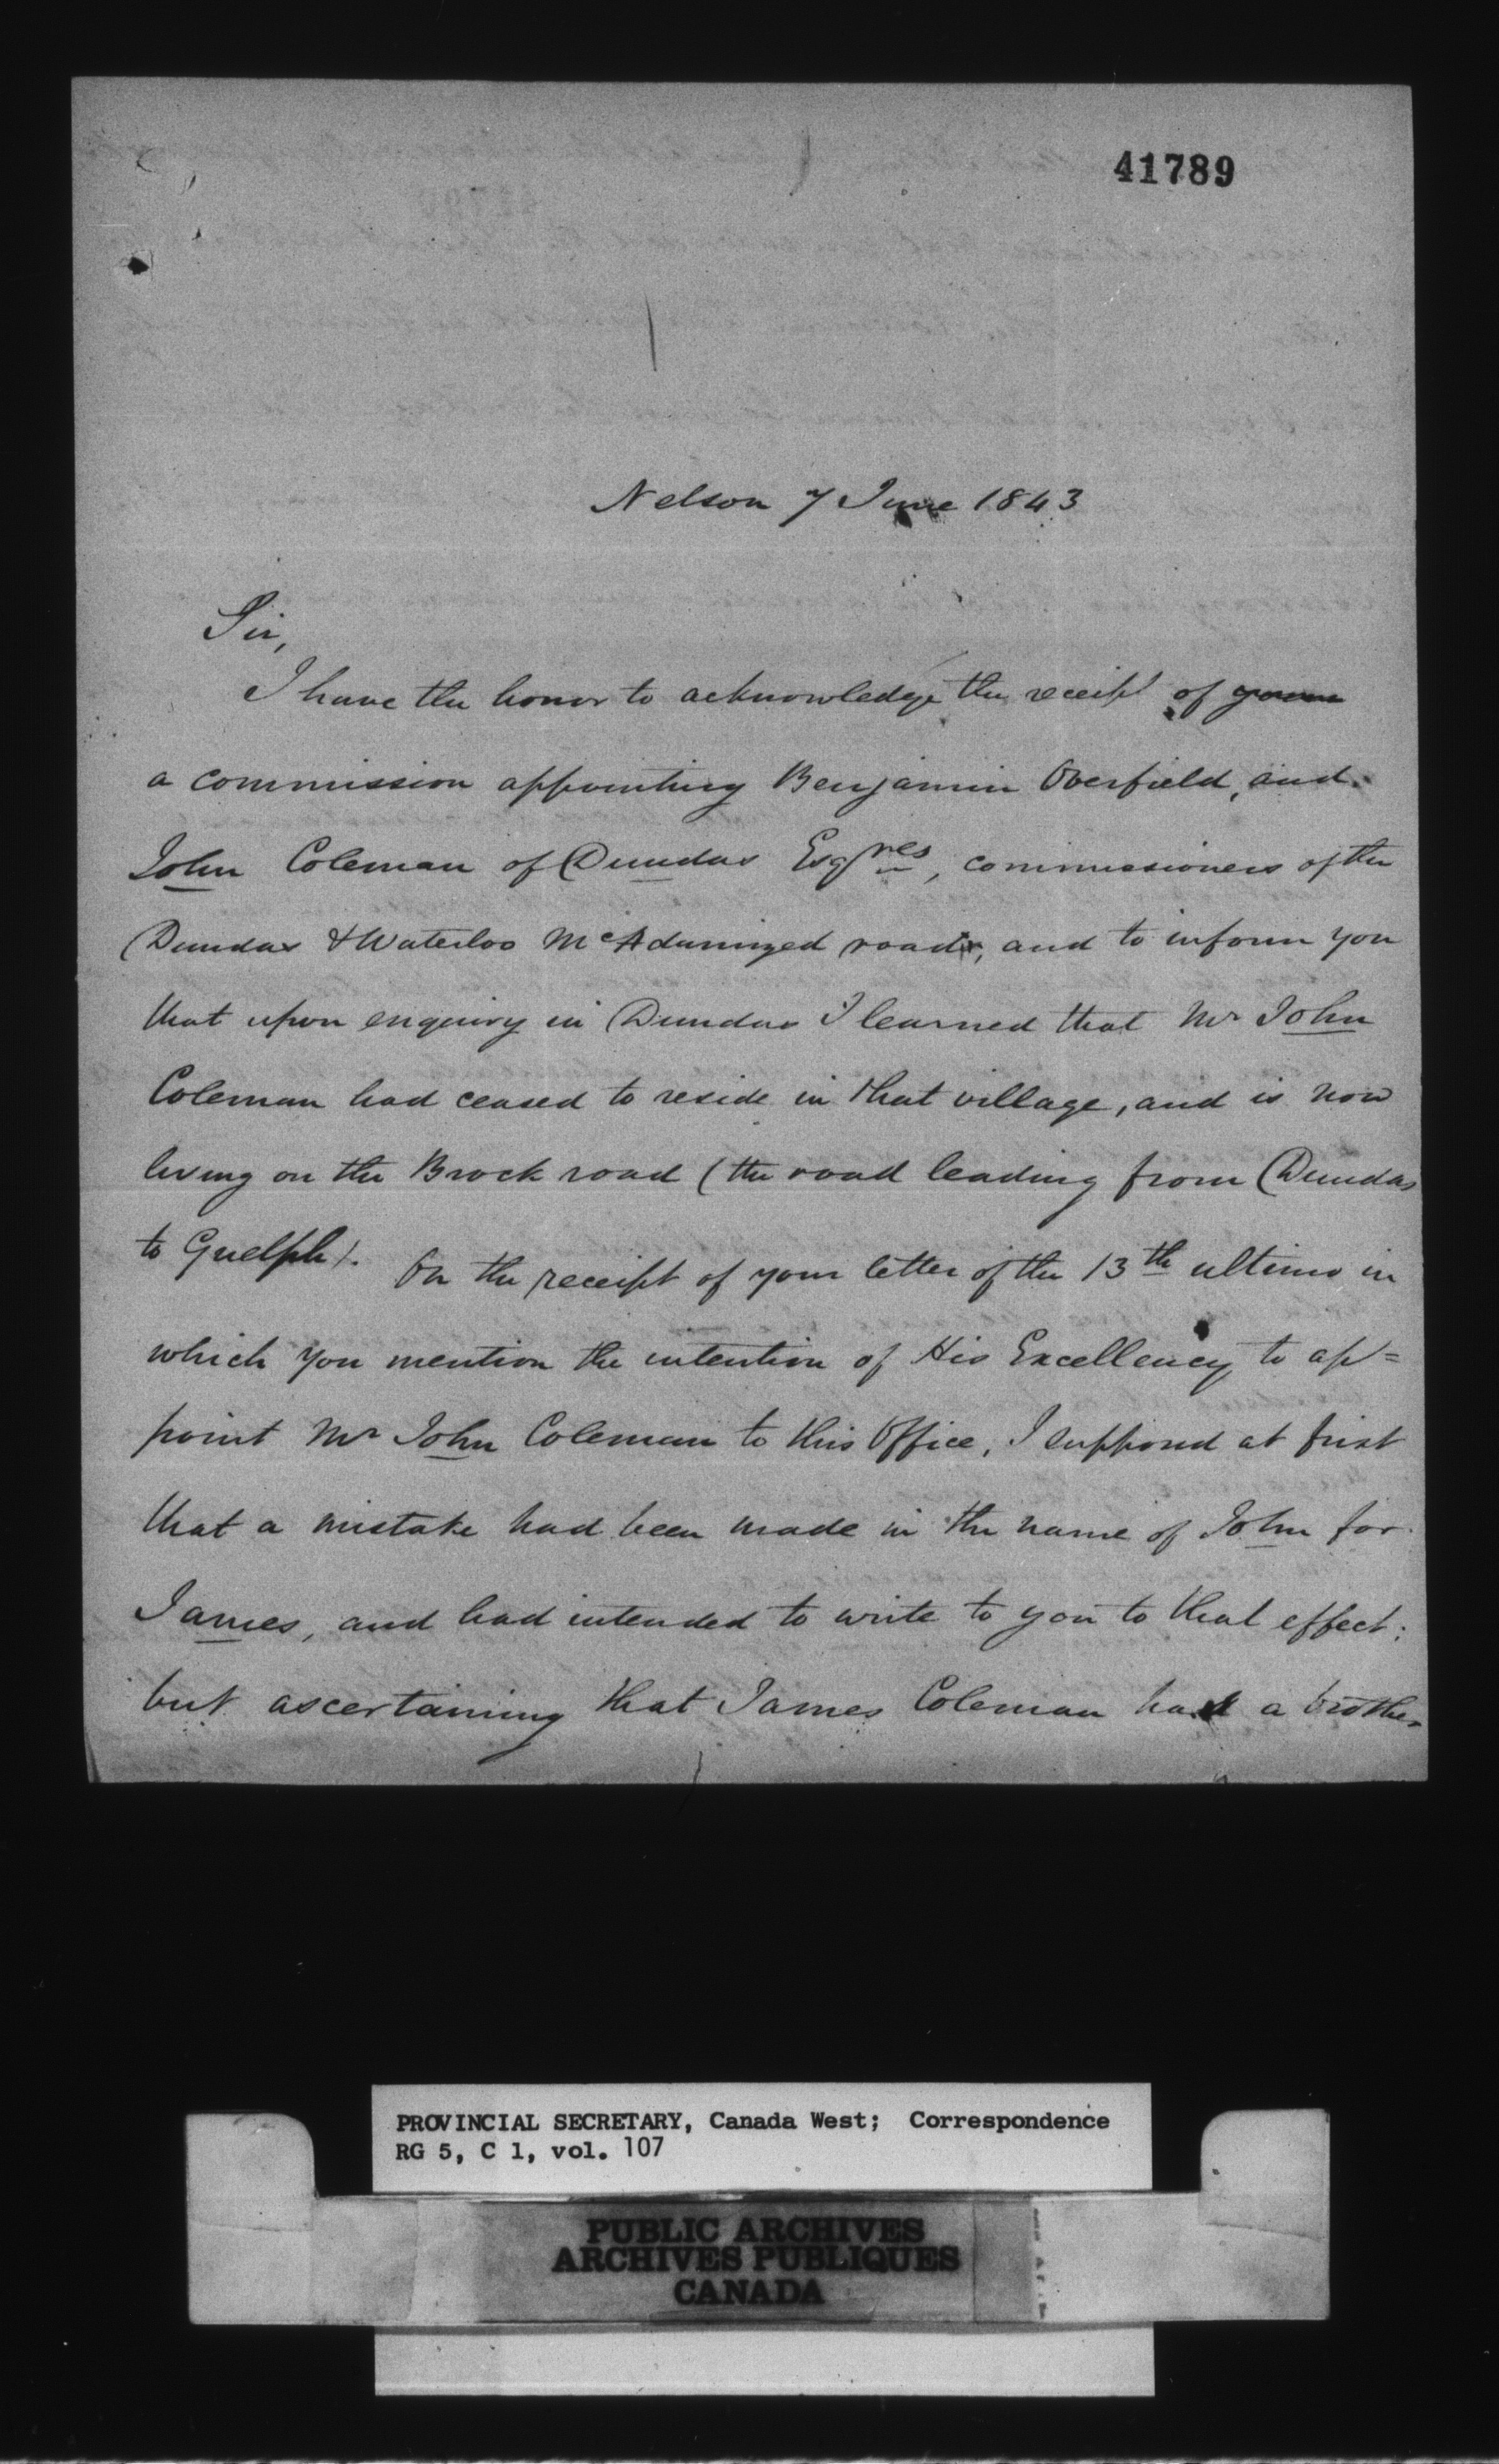 41789
Nelson 7 June 1843
Sir,
I have the honor to acknowledge the receipt of
a commission appointing Benjamin Overfield, and
John Coleman of Dundas Esqres, commissioners of the
Dundas & Waterloo McAdamized road, and to inform you
that upon enquiry in Dundas I learned that Mr John
Coleman had ceased to reside in that village, and is now
living on the Brock road (the road leading from Dundas
to Guelph). On the receipt of your letter of the 13th ultimo in
which you mention the intention of His Excellency to ap=
point Mr John Coleman to this Office, I supposed at first
that a mistake had been made in the name of John for
James, and had intended to write to you to that effect;
but ascertaining that James Coleman had a brother
PROVINCIAL SECRETARY, Canada West; Correspondence
RG 5, C 1, vol. 107
PUBLIC ARCHIVES
ARCHIVES PUBLIQUES
CANADA